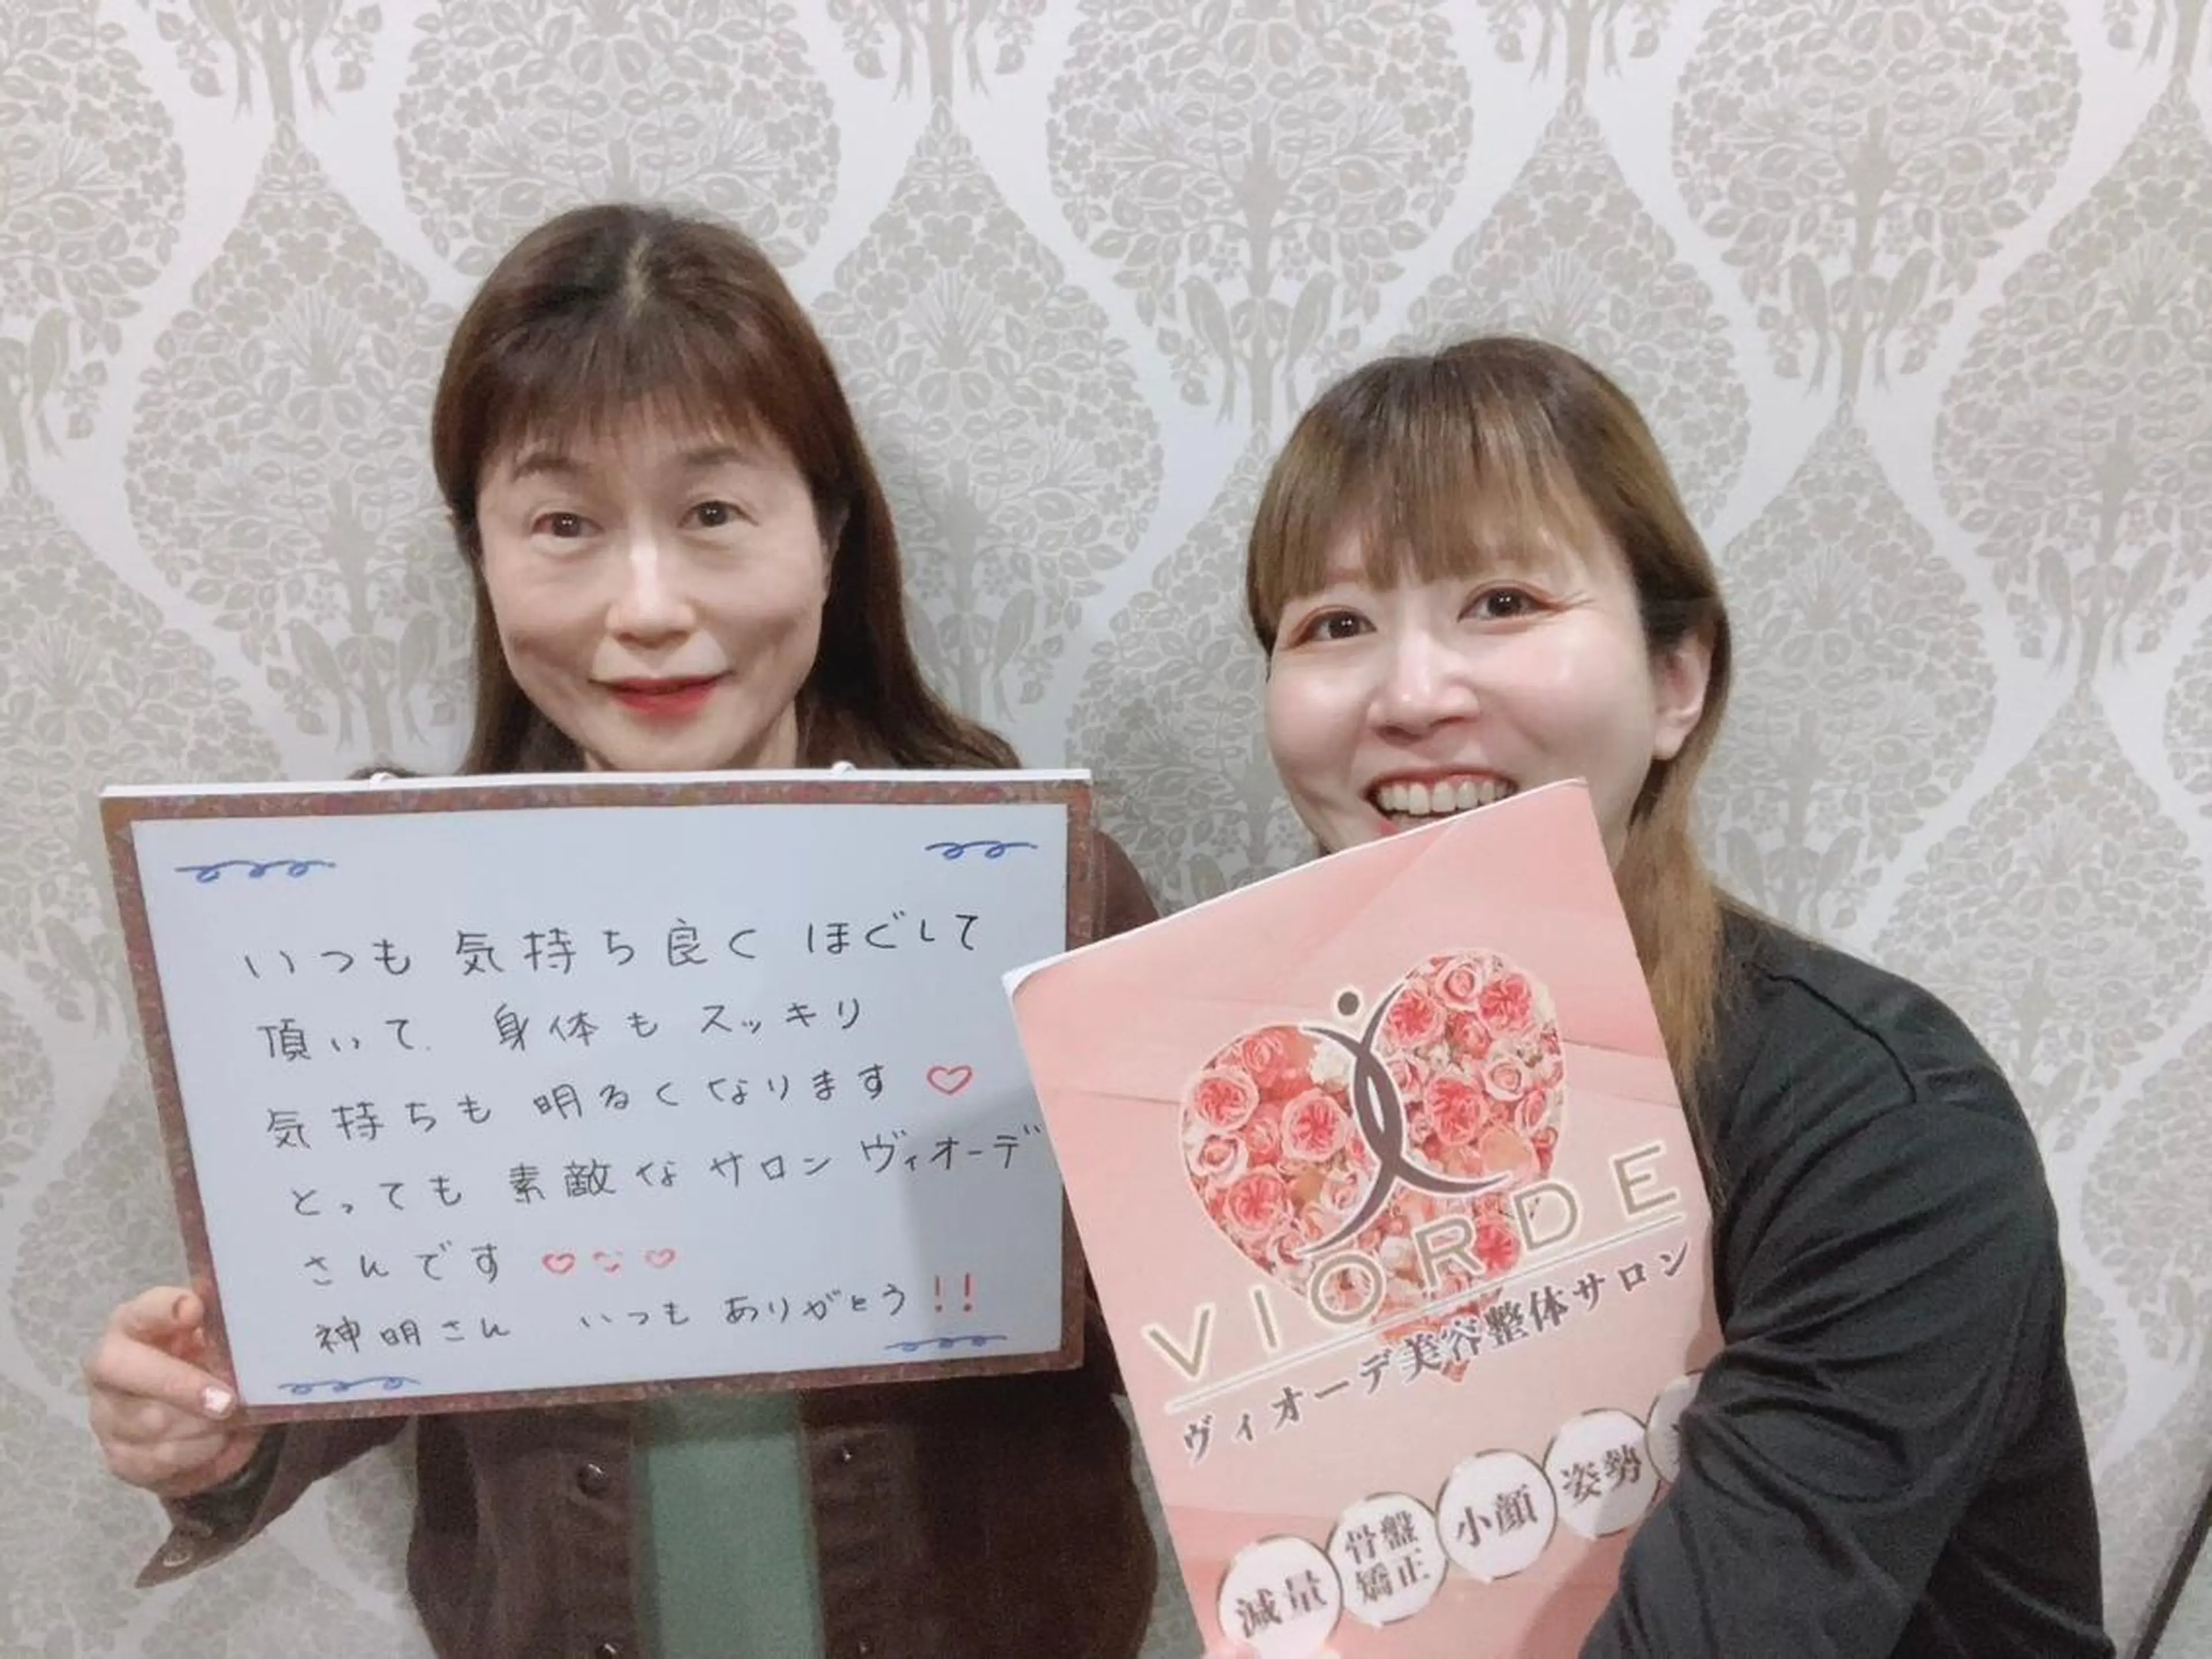 いつも 気持ち良く ほぐして
頂いて. 身体も スッキリ
気持ちも 明るくなります♡
とっても 素敵な サロン ヴィオーデ
さんです ♡♡♡
神明さん いつも ありがとう!!
VIORDE
ヴィオーデ美容整体サロン
減量
骨盤
矯正
小顔
姿勢